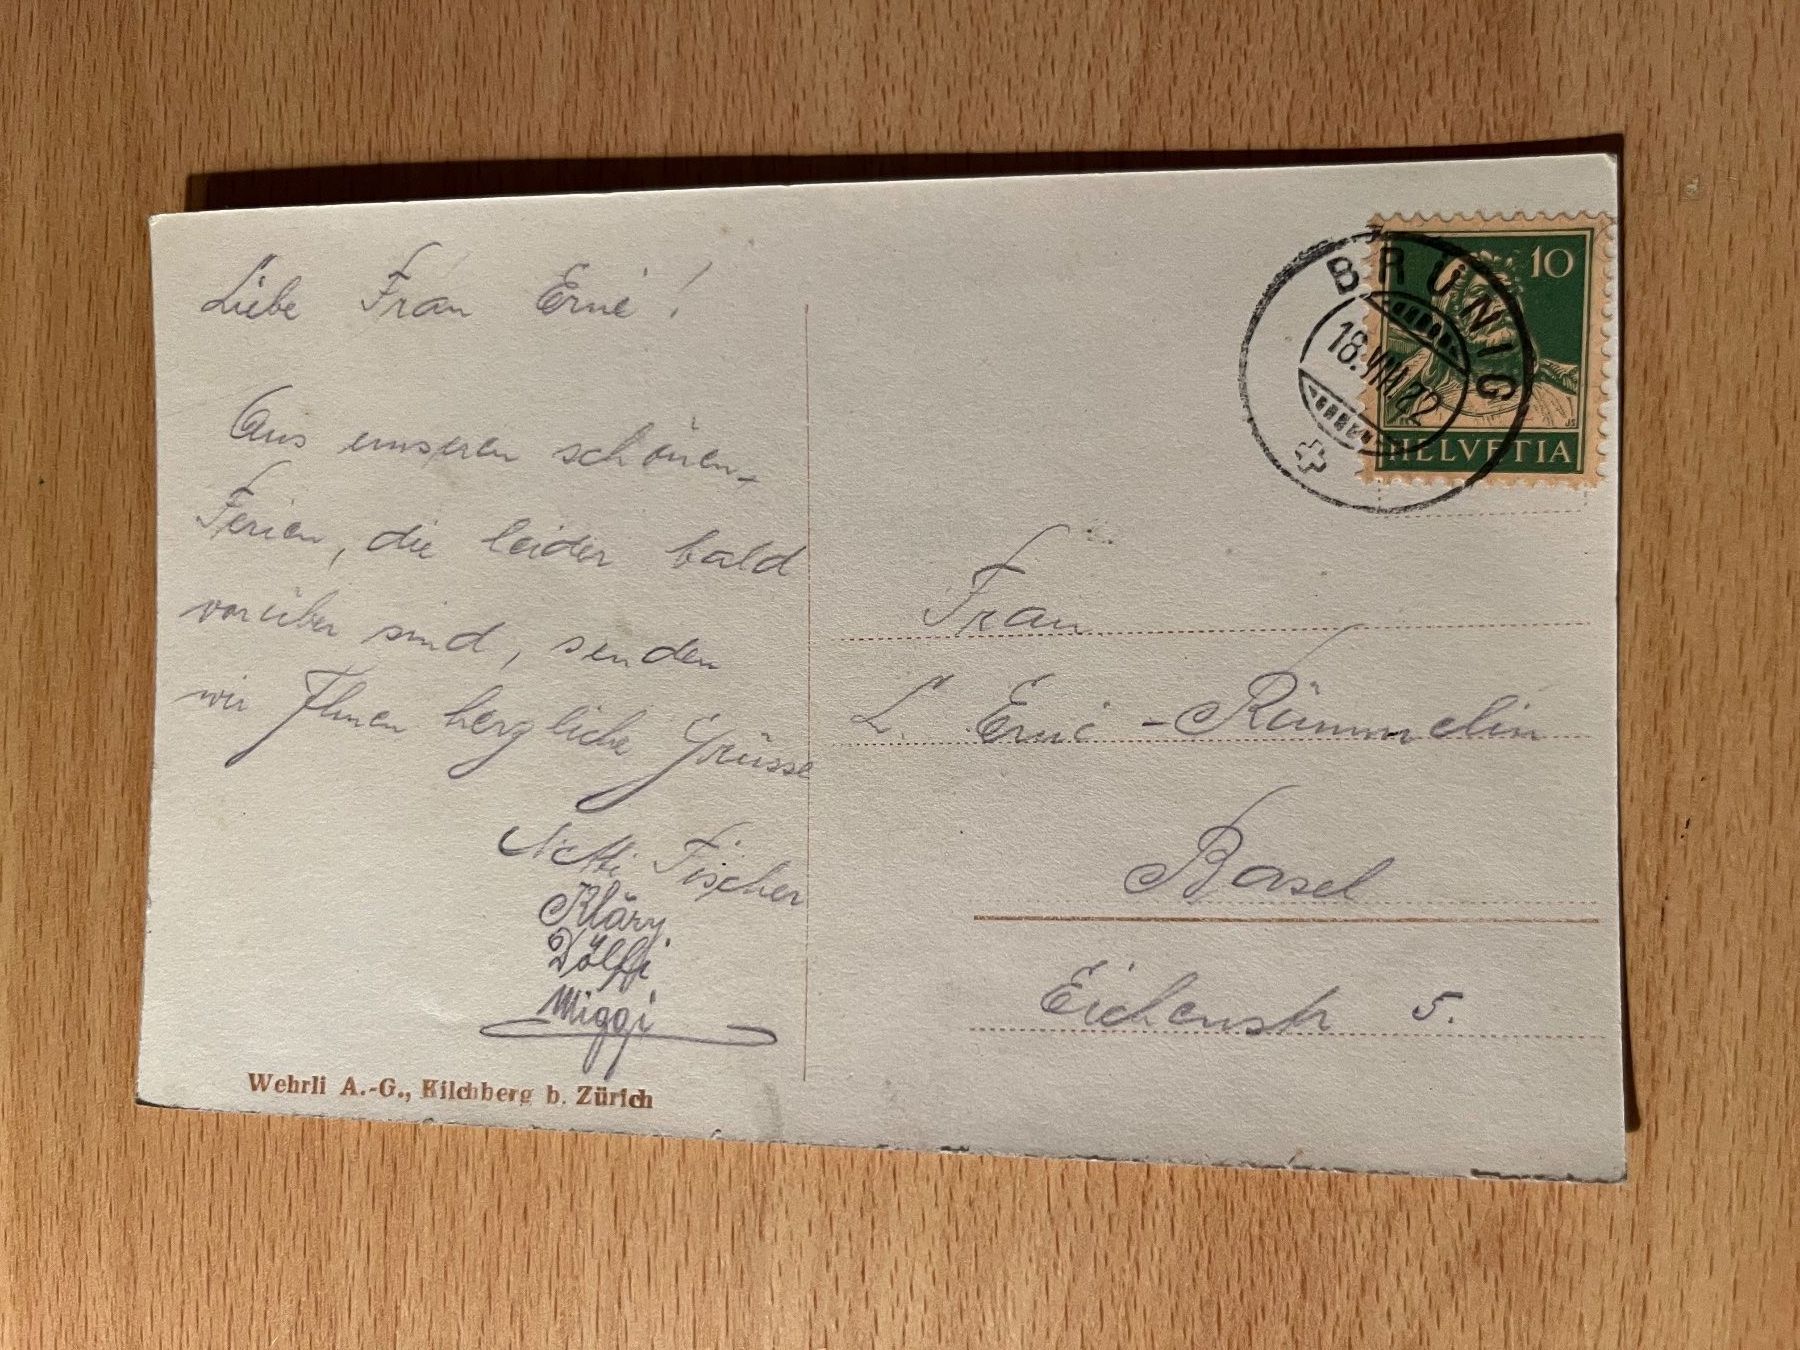 Liebe Frau Erné!
Aus unseren schönen
Ferien, die leider bald
vorüber sind, senden
wir Ihnen herzliche Grüsse
Netti Fischer
Kläry
Dölfi
Miggi
Wehrli A.-G., Kilchberg b. Zürich
BRÜNIG
18.VIII.22
10
HELVETIA
Frau
L. Erné-Rümmelin
Basel
Eichenstr 5.